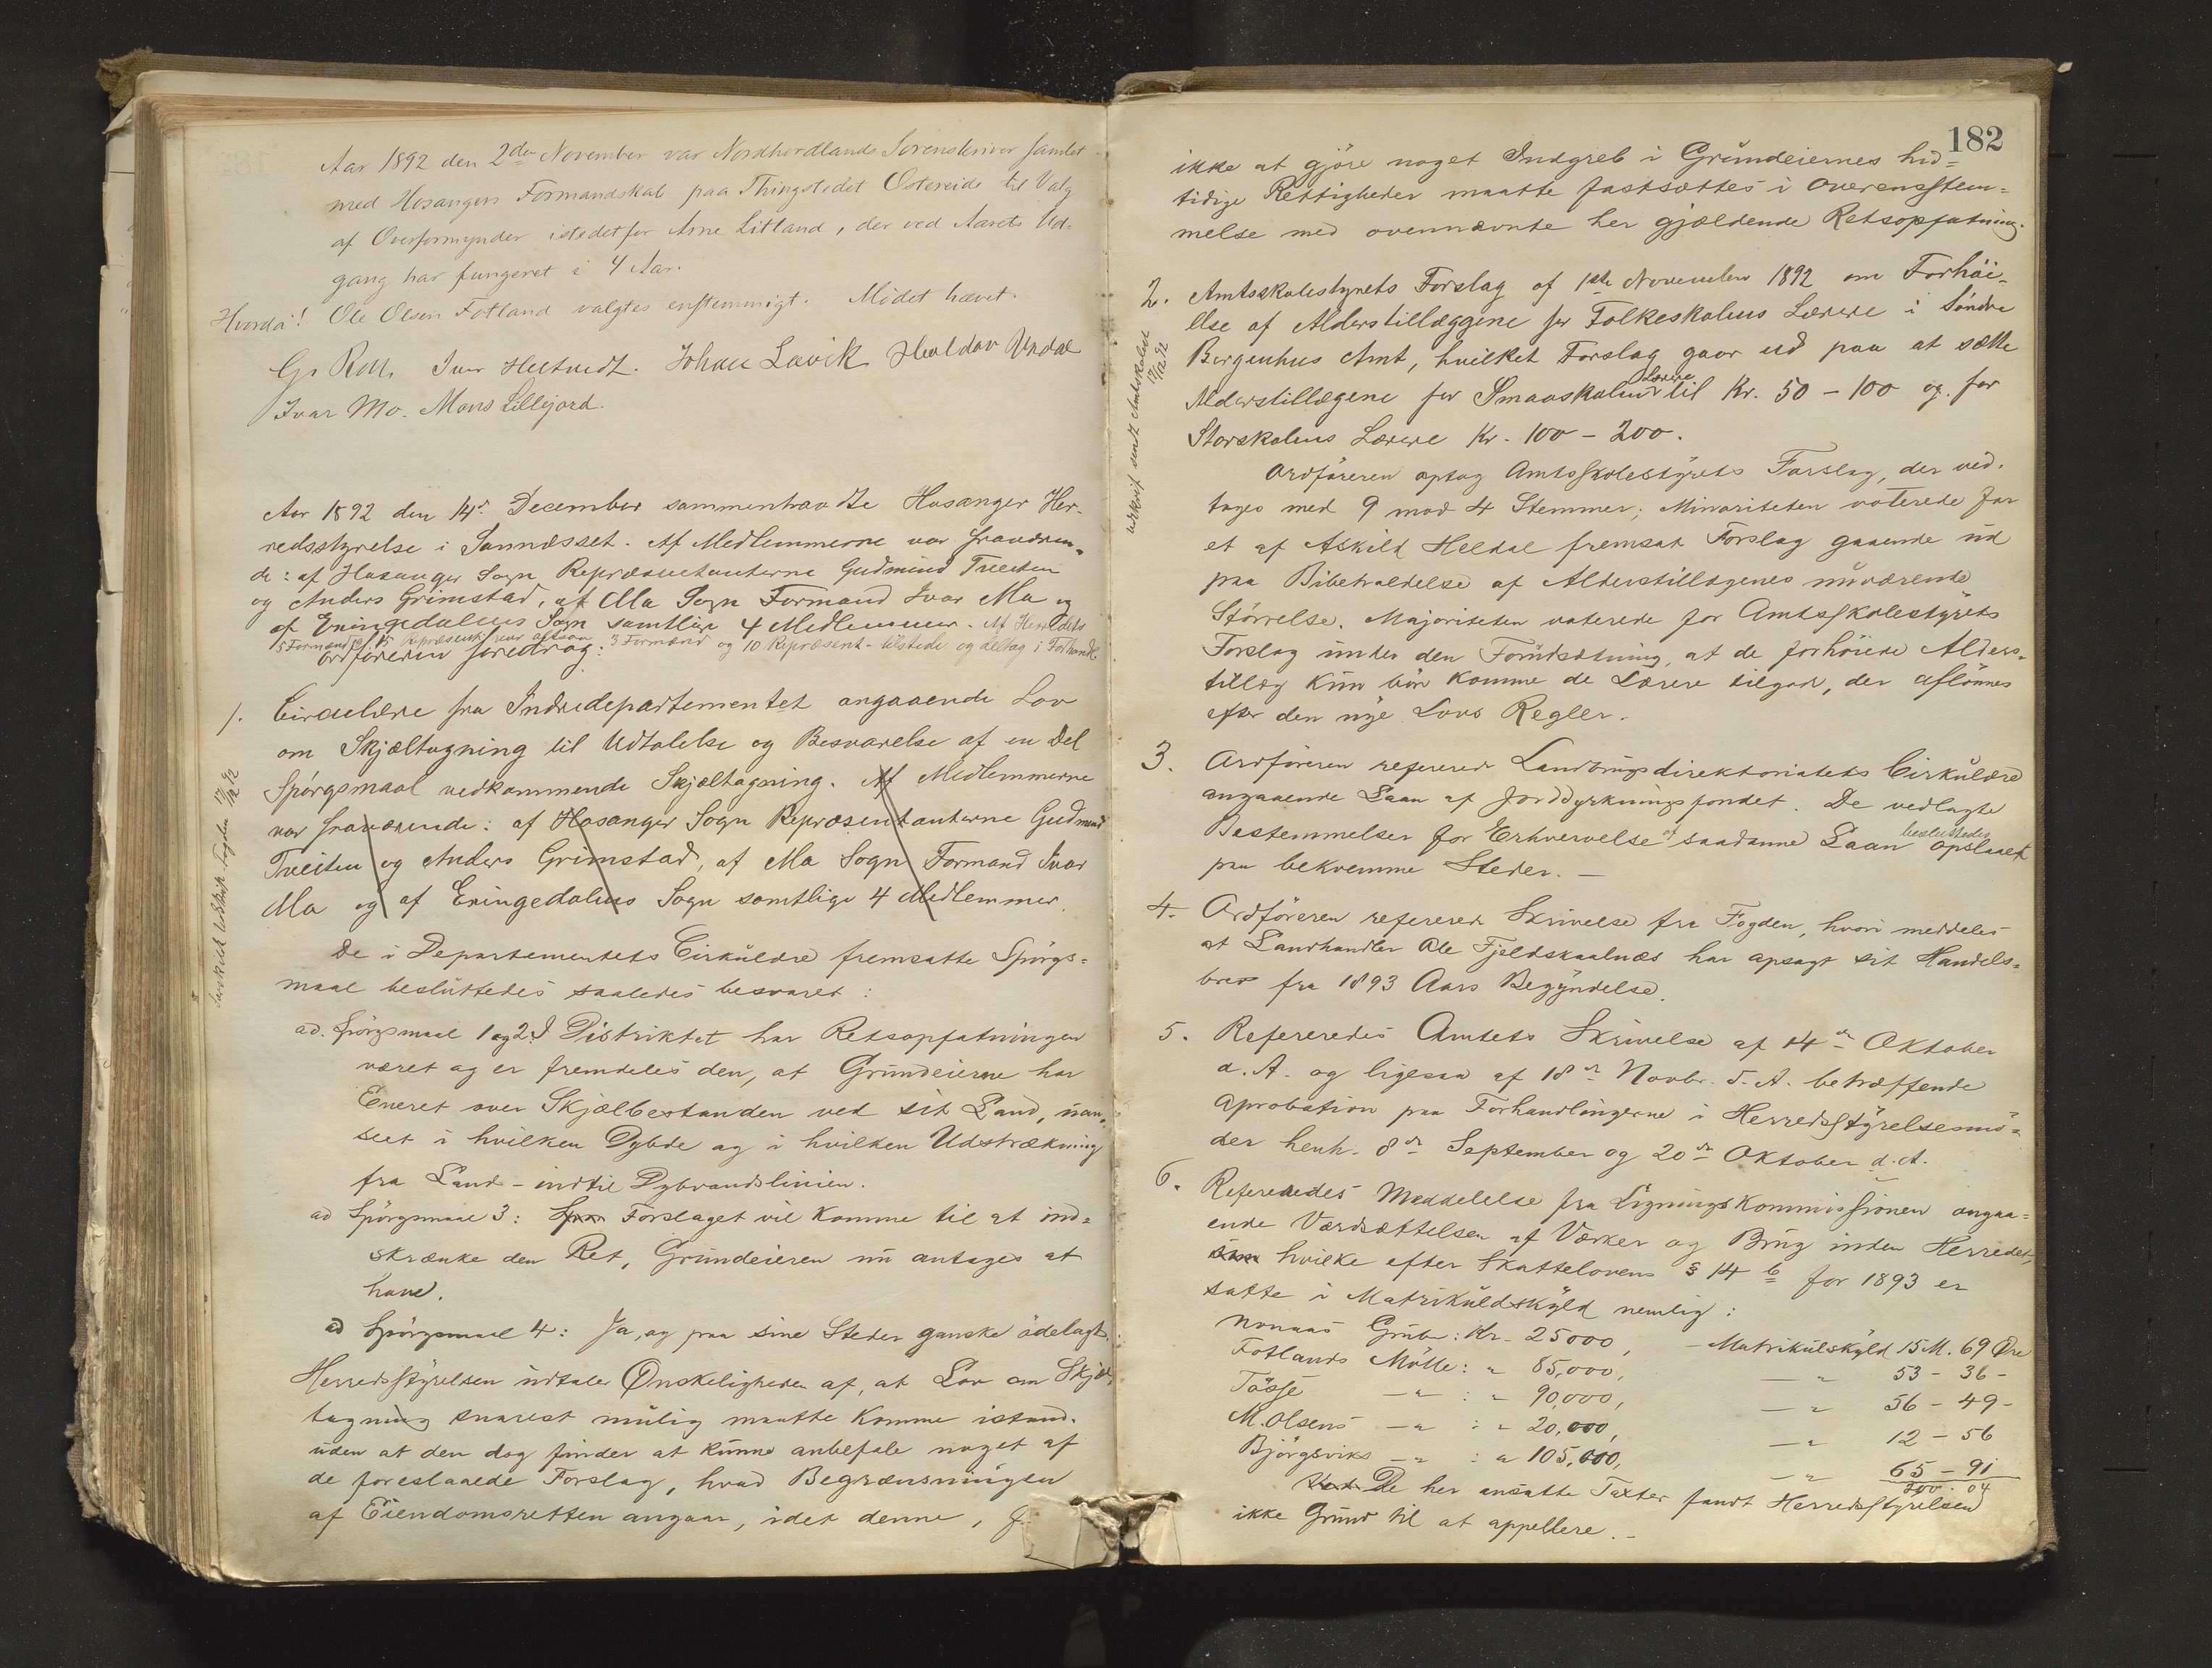 Aar 1892 den 2den November var Nordhordlands Sorenskriver samlet
med Hosangers Formandskab paa Thingstedet Ostereide til Valg
af Overformynder istedetfor Arne Litland, der ved Aarets Ud-
gang har fungeret i 4 Aar.
Hvorda! Ole Olsen Fotland valgtes enstemmigt. Mödet hævet.
Gr. Roll. Iver Heltvedt. Johan Lavik Haldor Undal
Ivar Mo. Mons Lillejord.
Aar 1892 den 14de December sammentraadte Hosanger Her-
redsstyrelse i Sannæsset. Af Medlemmerne var fraværen-
de: af Hosanger Sogn Repræsentanterne Gudmund Tveiten
og Anders Grimstad, af Mo Sogn Formand Ivar Mo og
af Eningedalens Sogn samtlige 4 Medlemmer. Af Herredets
5 Formænd og 15 Repræsent. var altsaa 3 Formænd og 10 Repræsent. tilstede og deltog i Forhandl.
Ordføreren foredrog:
1. Circulære fra Indredepartementet angaaende Lov
om Skjæltagning til Udtalelse og Besvarelse af en Del
Spörgsmaal vedkommende Skjæltagning. Af Medlemmerne
var fraværende: af Hosanger Sogn Repræsentanterne Gudmund
Tveiten og Anders Grimstad, af Mo Sogn Formand Ivar
Mo og af Eningedalens Sogn samtlige 4 Medlemmer.
Særskilt Udskrift Fogden 17/12 92
De i Departementets Cirkulære fremsatte Spörgs-
maal besluttedes saaledes besvaret:
ad. Spörgsmaal 1 og 2. I Distriktet har Retsopfatningen
været og er fremdeles den, at Grundeierne har
Eneret over Skjælbestanden ved sit Land, uan-
seet i hvilken Dybde og i hvilken Udstrækning
fra Land - indtil Dybvandslinien.
ad Spörgsmaal 3: Forslaget vil komme til at ind-
skrænke den Ret, Grundeieren nu antages at
have.
ad Spörgsmaal 4: Ja, og paa sine Steder ganske ödelagt.
Herredsstyrelsen udtaler Önskeligheden af, at Lov om Skjæl-
tagning snarest mulig maatte komme istand.
uden at den dog finder at kunne anbefale noget af
de foreslaaede Forslag, hvad Begrænsningen
af Eiendomsretten angaar, idet denne, f
182
ikke at gjöre noget Indgreb i Grundeiernes hid-
tidige Rettigheder maatte fastsættes i Overensstem-
melse med ovennævnte her gjældende Retsopfatning.
2. Amtsskolestyrets Forslag af 1ste November 1892 om Forhöi-
else af Alderstillæggene for Folkeskolens Lærere i Söndre
Bergenhus Amt, hvilket Forslag gaar ud paa at sætte
Alderstillægene for Smaaskolens Lærere til Kr. 50 - 100 og for
Storskolens Lærere Kr. 100 - 200.
Udskrift sendt Amtsskolest. 17/12 92
Ordföreren optog Amtsskolestyrets Forslag, der ved-
toges med 9 mod 4 Stemmer; Minoriteten voterede for
et af Askild Heldal fremsat Forslag gaaende ud
paa Bibeholdelse af Alderstillægenes nuværende
Störrelse. Majoriteten voterede for Amtsskolestyrets
Forslag under den Forudsætning, at de forhöiede Alders-
tillæg kun bör komme de Lærere tilgode, der aflönnes
efter den nye Lovs Regler.
3. Ordföreren refererede Landbrugsdirektoriatets Cirkulære
angaaende Laan af Jorddyrkningsfondet. De vedlagte
Bestemmelser for Erhvervelse af saadanne Laan besluttedes opslaaet
paa bekvemme Steder. -
4. Ordföreren refererede Skrivelse fra Fogden, hvori meddeles
at Landhandler Ole Fjeldskaalnæs har opsagt sit Handels-
brev fra 1893 Aars Begyndelse.
5. Refereredes Amtets Skrivelse af 14de Oktober
d. A. og ligesaa af 18de Novbr. d. A. betræffende
Aprobation paa Forhandlingerne i Herredsstyrelsesmö-
der henh. 8de September og 20de Oktober d. A.
6. Refereredes Meddelelse fra Ligningskommissionen angaa-
ende Værdsættelsen af Værker og Brug inden Herredet,
hvilke efter Skattelovens § 14 b for 1893 er
satte i Matrikuldskyld nemlig:
Nonaas Grube: Kr. 25000, - Matrikulskyld 15 M. 69 Øre
Fotlands Mölle: " 85,000, - " 53 - 36 -
Tösse - " : " 90,000, - " 56 - 49 -
M. Olsens - " : " 20,000, - " 12 - 56
Björgsviks - " : " 105,000, - " 65 - 91
200 . 04
De her ansatte Taxter fandt Herredsstyrelsen
ikke Grund til at appellere. -